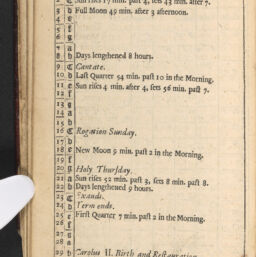 2 C Sun rises 17 min. past 4, sets 43 min. after 7.
3 d Full Moon 49 min. after 3 afternoon.
4 e
5 f
6 g
7 a
8 b Days lengthened 8 hours.
9 C Cantate.
10 d Last Quarter 54 min. past 10 in the Morning.
11 e Sun rises 4 min. after 4, sets 56 min. past 7.
12 f
13 g
14 a
15 b
16 C Rogation Sunday.
17 d
18 e New Moon 9 min. past 2 in the Morning.
19 f
20 g Holy Thursday.
21 a Sun rises 52 min. past 3, sets 8 min. past 8.
22 b Days lengthened 9 hours.
23 C Exaudi.
24 d Term ends.
25 e First Quarter 7 min. past 2 in the Morning.
26 f
27 g
28 a
29 b Carolus II. Birth and Restauration